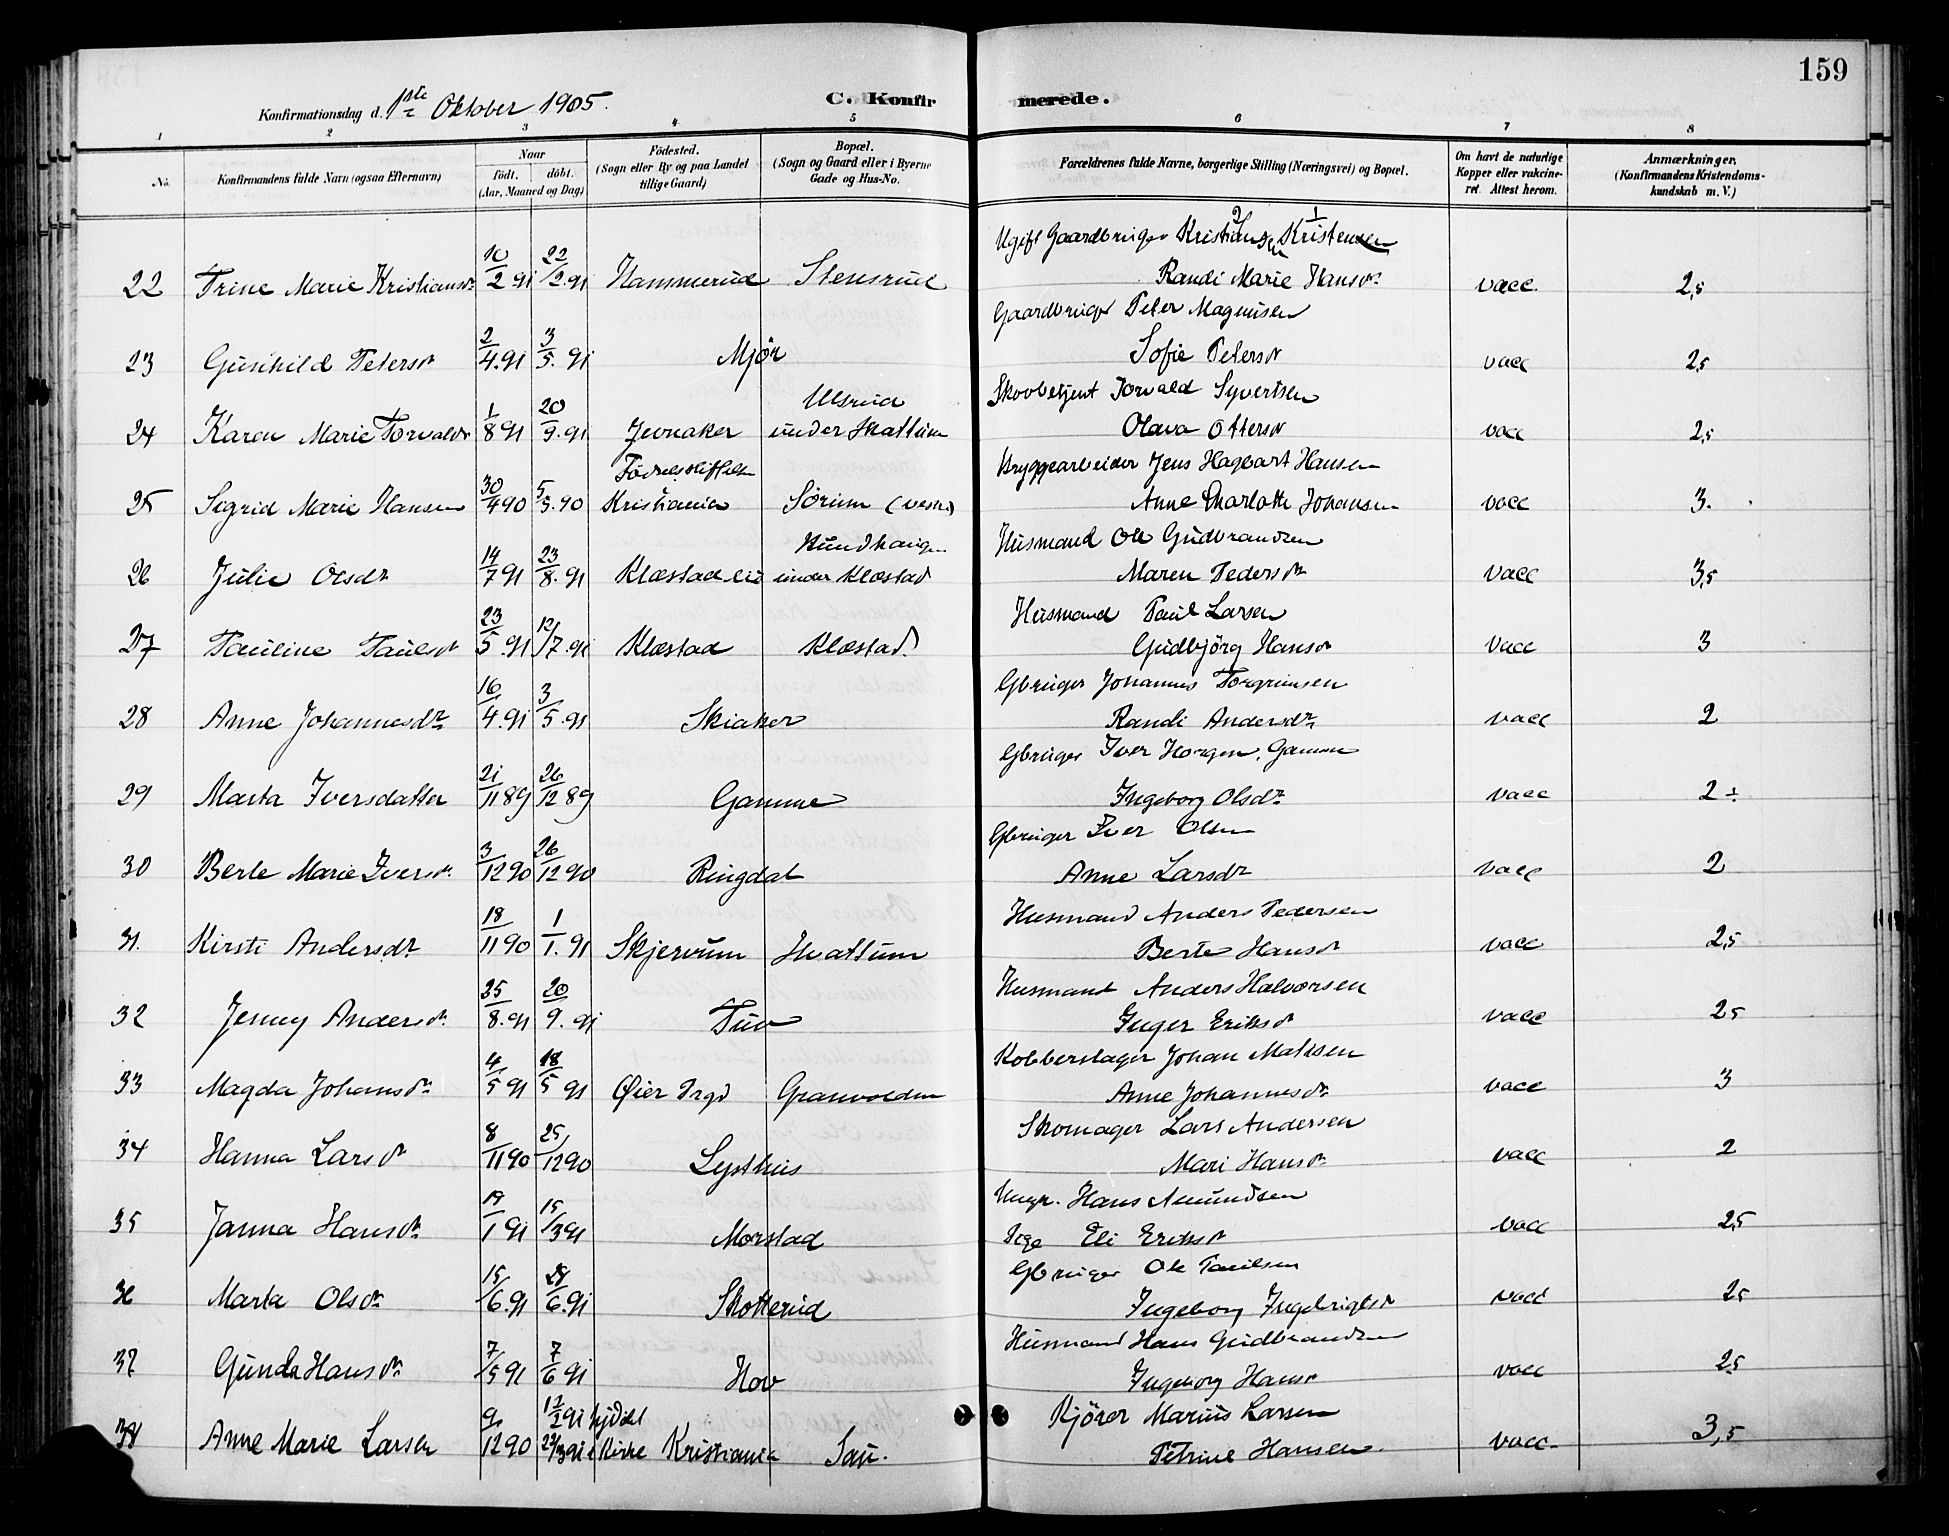 159
Konfirmationsdag d. 1ste Oktober 1905.
C. Konfirmerede.
1 2 3 4 5 6 7 8
No. Konfirmandens fulde Navn (ogsaa Efternavn) Naar födt. döbt. (Aar, Maaned og Dag) Födested. (Sogn eller By og paa Landet tillige Gaard) Bopæl. (Sogn og Gaard eller i Byerne Gade og Hus-No. Forældrenes fulde Navne, borgerlige Stilling (Næringsvei) og Bopæl. Om havt de naturlige Kopper eller vakcineret. Attest herom. Anmærkninger. (Konfirmandens Kristendomskundskab m. V.)
Ugift Gaardbruger Kristiansen Kristensen
22 Trine Marie Kristiansdr 10/2 91 22/2.91 Hammerud Stensrud Randi Marie Hansdr vacc. 2,5
Gaardbruger Peter Magnusen
23 Gunhild Petersdr 2/4.91 3/5.91 Mjør Sofie Petersdr vacc 2,5
Skovbetjent Torvald Syvertsen
24 Karen Marie Torvaldsdr 1/8 91 20/9.91 Jevnaker Ulsrud under Skattum Olava Ottersdr vacc 2,5
Bryggearbeider Jens Hagbart Hansen
25 Sigrid Marie Hansen 30/4 90 5/5.90 Fødselsstiftelsen Kristiania Sörum (vestre) Anne Charlotte Johansen vacc 3.
Husmand Ole Gudbrandsen
26 Julie Olsdr 14/7 91 23/8.91 Klæstad eie under Klæstad Maren Pedersdr vacc 3,5
Husmand Paul Larsen
27 Pauline Paulsdr 23/5.91 12/7.91 Klæstad Klæstad Gudbjörg Hansdr vacc 3
Gbruger Johannes Torgrimsen
28 Anne Johannesdr 16/4.91 3/5.91 Skiaker Randi Andersdr vacc 2
Gbruger Iver Horgen, Gamme
29 Marta Iversdatter 21/11 89 26/12 89 Gamme Ingeborg Olsdr vacc 2
Gbruger Iver Olsen
30 Berte Marie Iversdr. 3/12 90 26/12 90 Ringdal Anne Larsdr vacc 2
Husmand Anders Pedersen
31. Kirsti Andersdr 18/11 90 1/1.91 Skjervum Skattum Berte Hansdr vacc 2,5
Husmand Anders Halvorsen
32 Jenny Andersdr. 25/8.91 20/9.91 Tuv Inger Eriksdr vacc 2,5
Kobberslager Johan Matisen
33 Magda Johansdr 4/5 91 18/5 91 Øier Prgd Granvolden Anne Johannesdr vacc 3
Skomager Lars Andersen
34 Hanna Larsdr 8/11 90 25/12 90 Lysthus Mari Hansdr vacc 2
Ungk. Hans Amundsen
35 Janna Hansdr 19/1 91 15/3 91 Morstad Pige Eli Eriksdr vacc 2,5
Gbruger Ole Paulsen
36 Marta Olsdr 15/6.91 28/6.91 Skotterud Ingeborg Ingebrigtsdr vacc 2,5
Husmand Hans Gudbrandsen
37 Gunda Hansdr 7/5 91 7/6 91 Hov Ingeborg Hansdr vacc 2,5
Kjörer Marius Larsen
38 Anne Marie Larsen 9/12 90 Kirke Kristiania Sau. Petrine Hansen. vacc 3,5